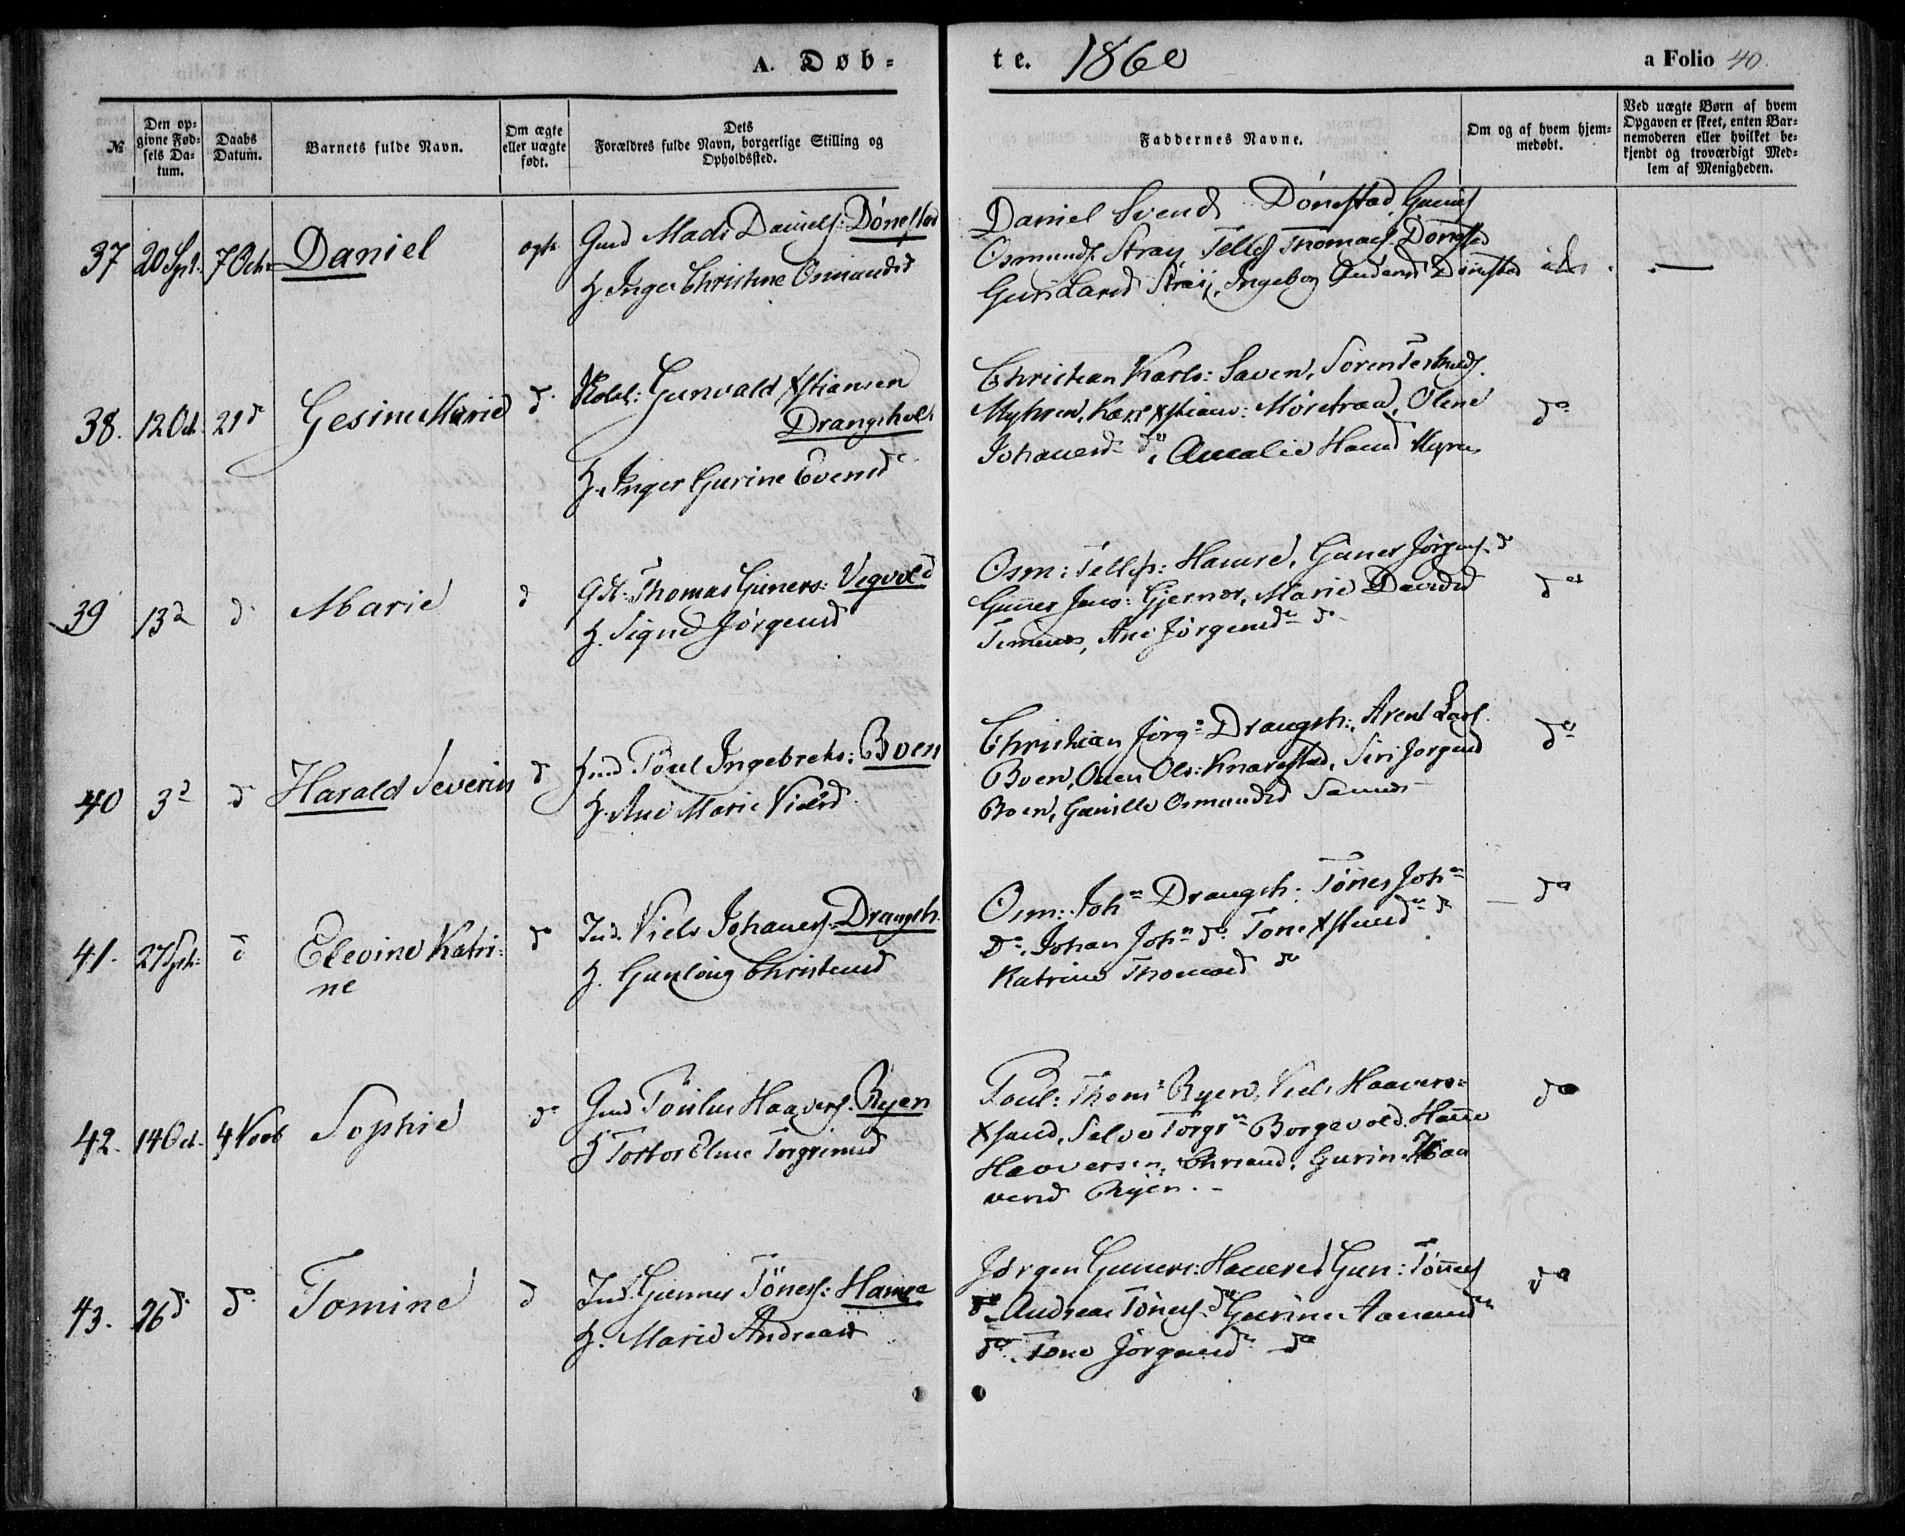 A. Døb=
te. 1860
a Folio 40.
№
Den op=
givne Fød=
sels Da=
tum.
Daabs
Datum.
Barnets fulde Navn.
Om ægte
eller uægte
født.
Dets
Forældres fulde Navn, borgerlige Stilling og
Opholdssted.
Faddernes Navne.
Om og af hvem hjem=
medøbt.
Ved uægte Børn af hvem
Opgaven er skeet, enten Bar=
nemoderen eller hvilket be=
kjendt og troværdigt Med=
lem af Menigheden.
37 20 Spt. 7 Octr Daniel ægte
Gmd Mads Daniels: Dønestad
H Inger Christine Osmundsd
Daniel Svends Dønestad, Guners
Osmunds. Stray, Tellef Thomas. Dønestad
Guri Larsd Straÿ, Ingeborg Andersd Dønestad
38. 12 Oct. 21 d Gesine Marie d
Gunvald Xstiansen
Drangsholt
H. Inger Gurine Evensd
Christian Karls: Saven, Søren Terkields.
Myhren, Karl Xstians: Møretraa, Oline
Johanesd do, Amalie Hansd Myren
do
39 13 d d Marie d
Thomas Guners: Vegvold
H. Signe Jørgensd
Osm: Tellefs: Hamre, Guner Jørgens. do
Guner Jens: Gjernes, Marie Davidsd
Timenes, Ane Jørgensd do
do
40 3 d d Harald Severin d
Hmd Poul Ingebrets: Boen
H. Ane Marie Nielsd
Christian Jørgn Drangsh:, Arent Lars.
Boen, Ouen Ols: Knarestad, Siri Jørgensd
Boen, Gunille Osmundsd
do
41. 27 Spt: d Elevine Katri=
ne do
Ind. Niels Johanes: Drangsh.
H. Gunloug Christensd
Osm: John Drangsh: Tønes John
do. Johan John do. Tone Xstensd do
Katrine Thomasd do
do
42. 14 Oct. 4 Novb Sophie do
Gmd Tønnes Haavers. Ryen
H Torbor Eline Torgrimsd
Poul: Thoms Ryen, Niels Haavers=
Xsand, Salve Torgrn Borgevold. Hane
Haaversen, Chrsand, Gurin Haa
versd Ryen.
do
43. 26 d. do Tomine d
Ind. Gunner Tønes: Hamre
H. Marie Andreasd
Jørgen Guners: Hamre Gun: Tønnes
do Andreas Tønes. do Gurine Aanensd
do. Tone Jørgensd do
do